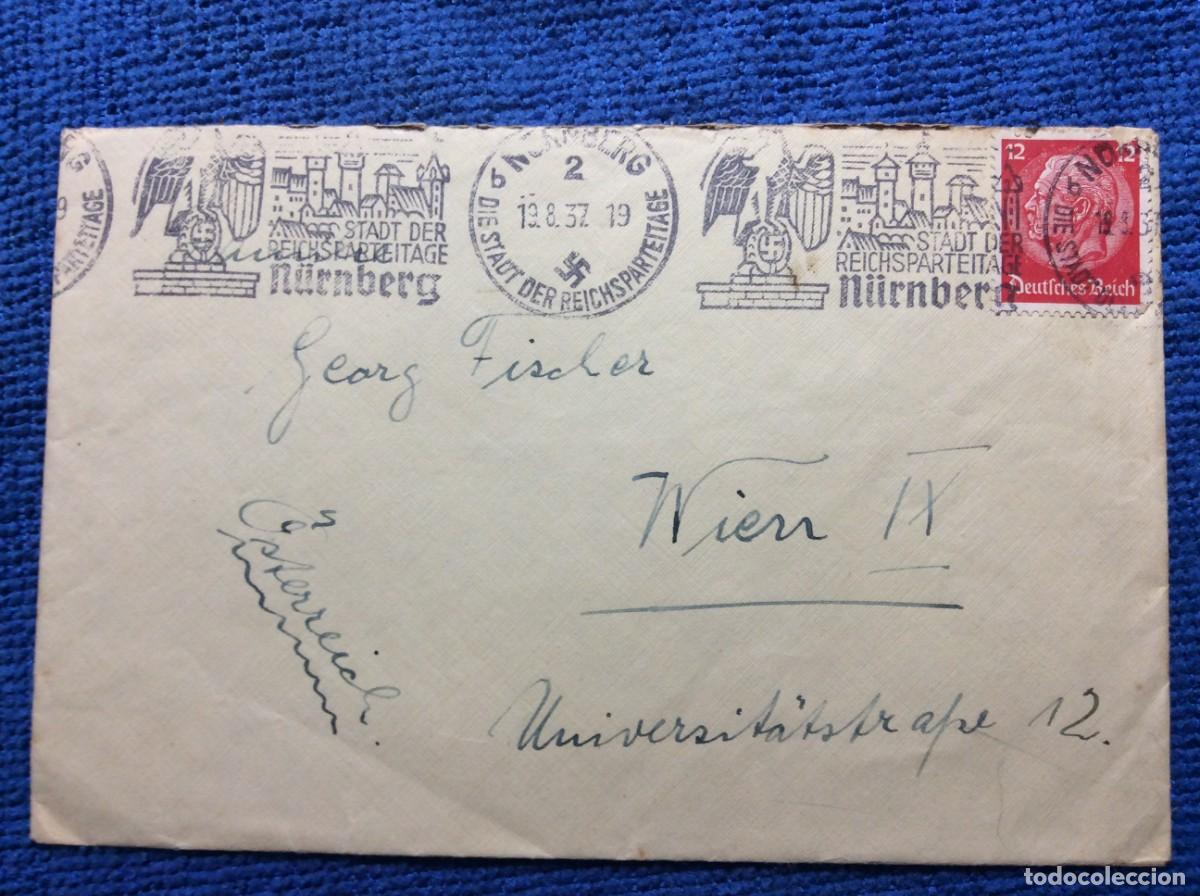 NÜRNBERG
2
b
19.8.37. 19
DIE STADT DER REICHSPARTEITAGE
STADT DER
REICHSPARTEITAGE
Nürnberg
STADT DER
REICHSPARTEITAGE
Nürnberg
12 12
Deutsches Reich
Georg Fischer
Wien IX
Österreich.
Universitätstraße 12.
todocoleccion